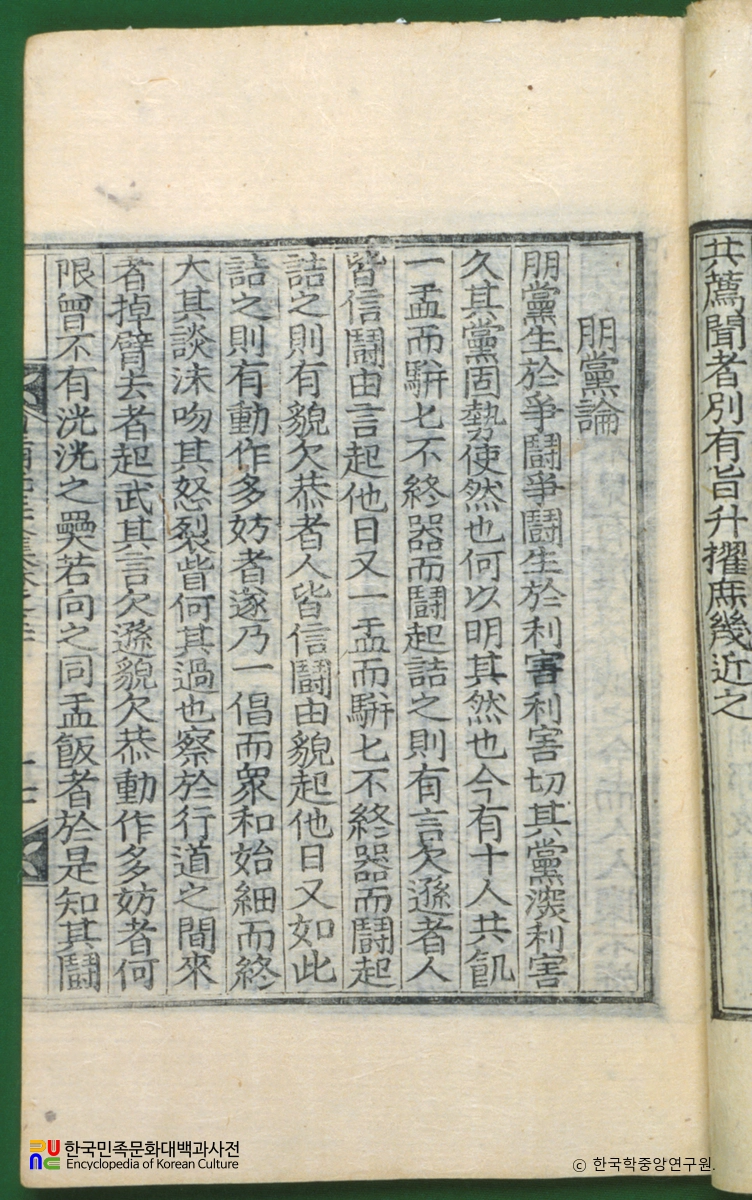 共薦聞者別有旨升擢庶幾近之
朋黨論
朋黨生於爭鬪爭鬪生於利害利害切其黨深利害
久其黨固勢使然也何以明其然也今有十人共飢
一盂而騈匕不終器而鬪起詰之則有言欠遜者人
皆信鬪由言起他日又一盂而騈匕不終器而鬪起
詰之則有貌欠恭者人皆信鬪由貌起他日又如此
詰之則有動作多妨者遂乃一倡而衆和始細而終
大其談沫吻其怒裂眥何其過也察於行道之間來
者掉臂去者起武其言欠遜貌欠恭動作多妨者何
限曾不有洸洸之舋若向之同盂飯者於是知其鬪
한국민족문화대백과사전
Encyclopedia of Korean Culture
© 한국학중앙연구원.